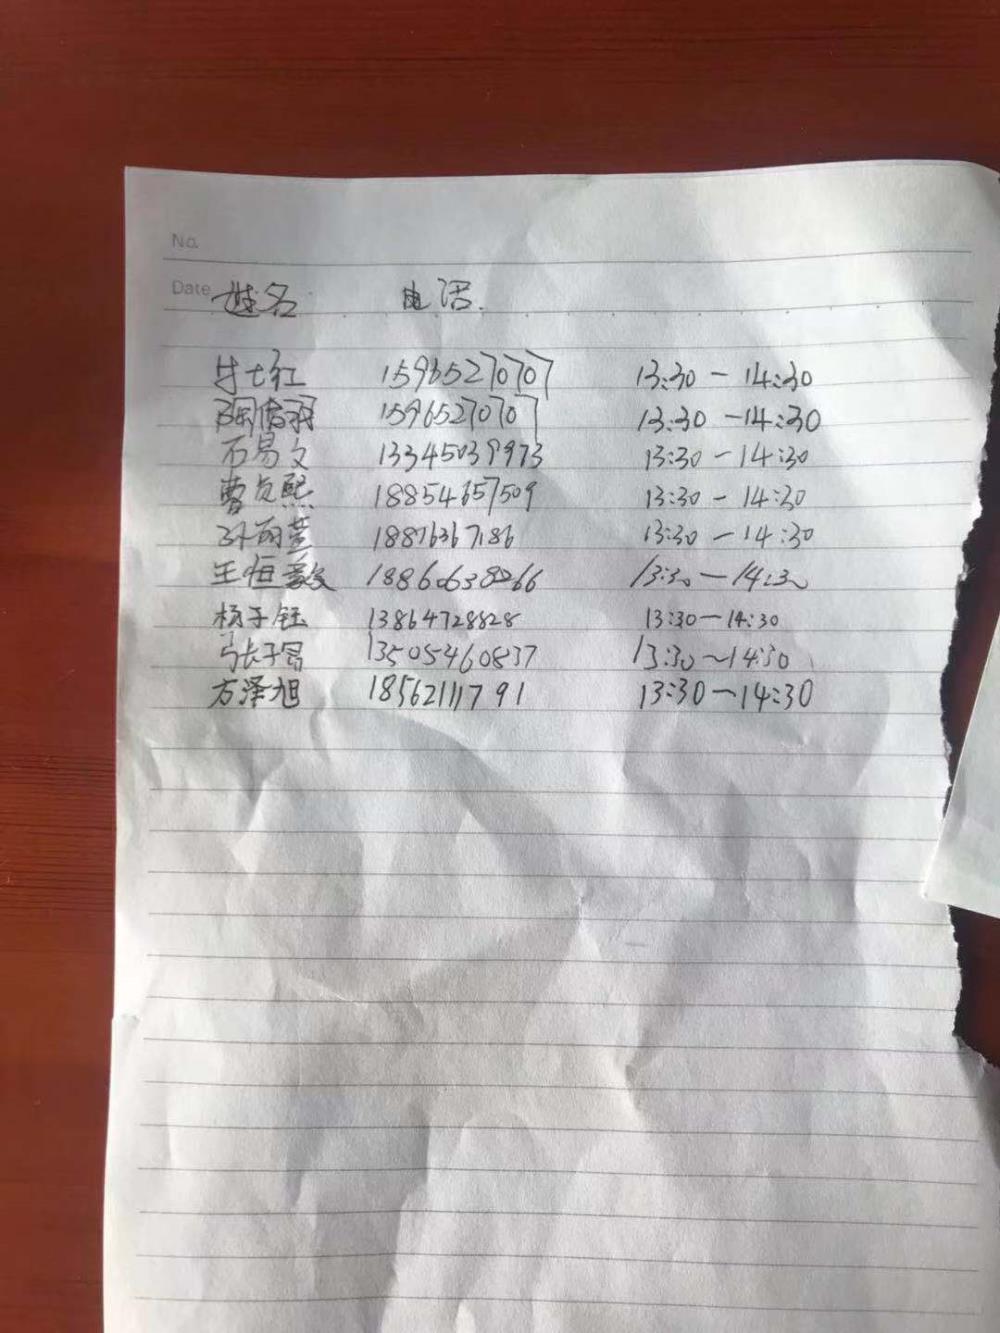 No.
Date 姓名 电话.
牛士红 15965270707 13:30-14:30
陶倩羽 15965270707 13:30-14:30
石易文 13345039973 13:30-14:30
曹贞熙 18854657509 13:30-14:30
孙雨萱 18816367186 13:30-14:30
王恒毅 18860638266 13:30-14:30
杨子钰 13864728828 13:30-14:30
张子冒 13505460837 13:30~14:30
方泽旭 18562111791 13:30-14:30